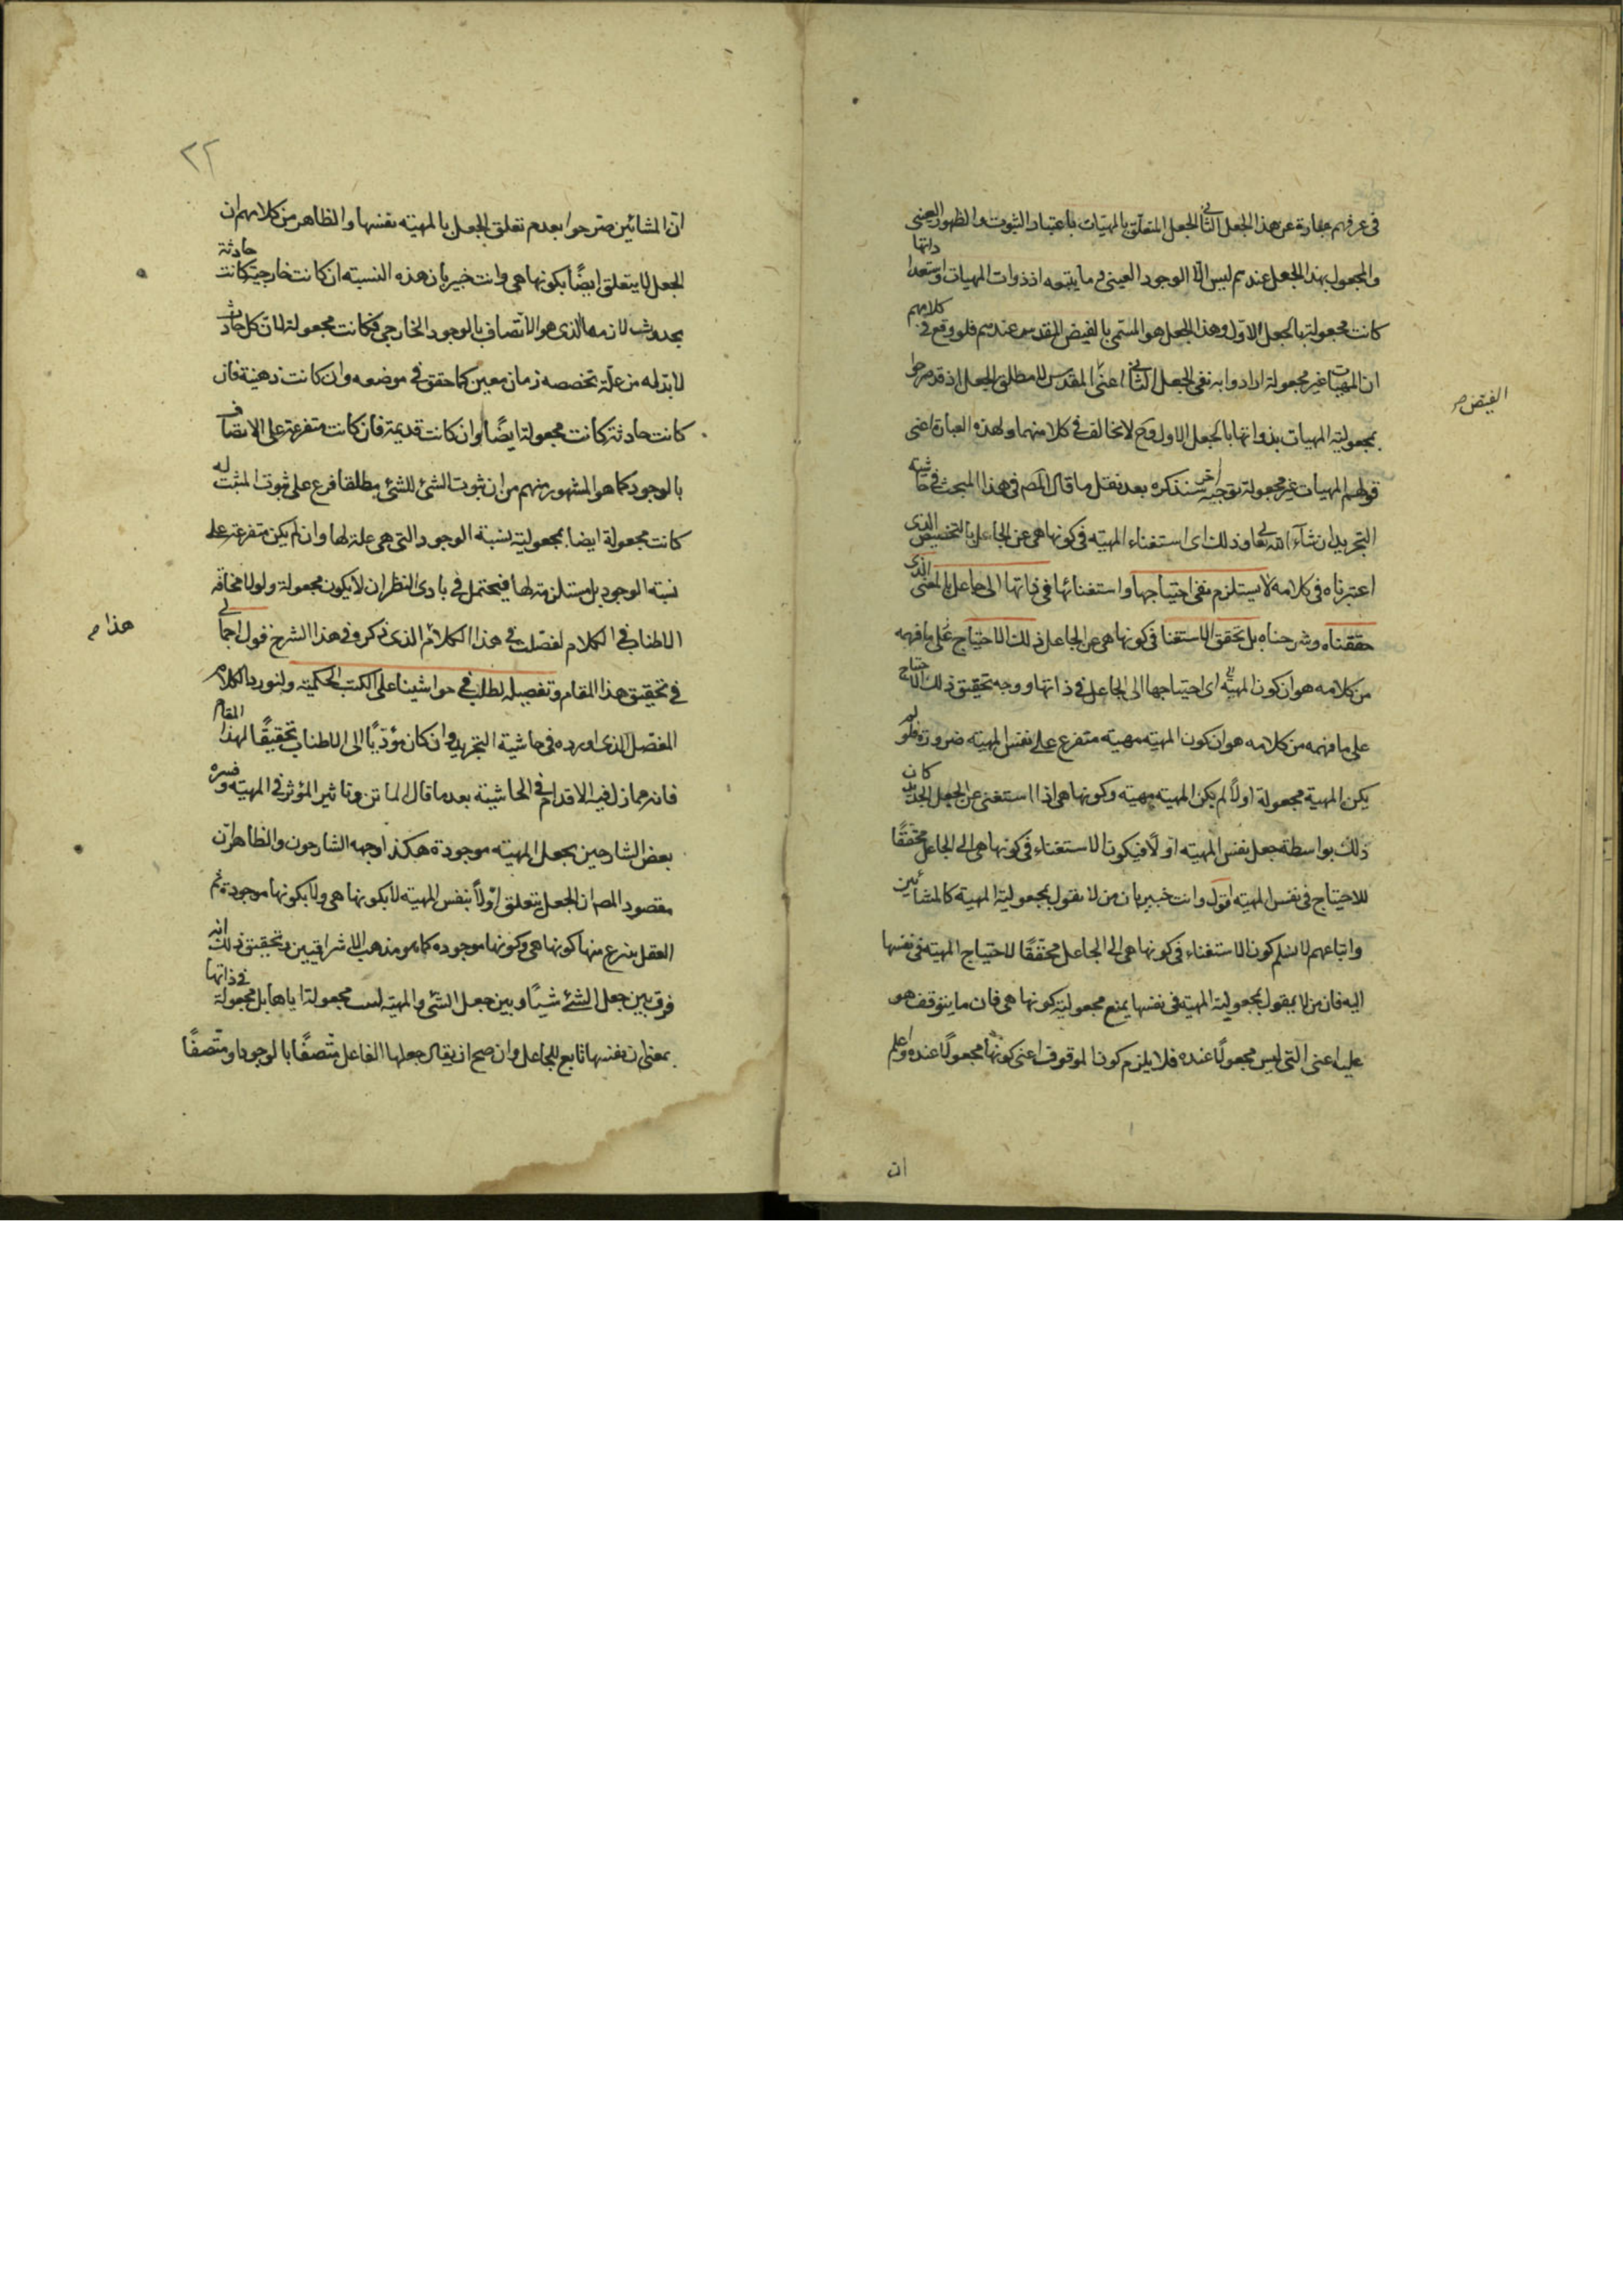 فى عرفهم عبارة عن هذا الجعل الثانى الجعل المتعلق بالمهيات باعتبار الثبوت والظهور العينى
والمجعول بهذا الجعل عندهم ليس الا الوجود العينى وما يتبعه اذ ذوات المهيات واستعداداتها
كانت مجعولة بالجعل الاول وهذا الجعل هو المسمى بالفيض المقدس عندهم فلو وقع فى كلامهم
ان المهيات غير مجعولة ارادوا به نفى الجعل الثانى اعنى المقدس لا مطلق الجعل اذ قد صرحوا
الفيض صح
بمجعولية المهيات بذواتها بالجعل الاول وح لا تخالف فى كلامهما ولهذه العبارة اعنى
قولهم المهيات غير مجعولة توجيه آخر سنذكره بعد نقل ما قال المص فى هذا المبحث فى حاشية
التجريد ان شاء الله تعالى وذلك اى استغناء المهية فى كونها هى عن الجاعل بالتخصيص الذى
اعتبرناه فى كلامه لا يستلزم نفى احتياجها واستغنائها فى ذاتها الى جاعل بالمعنى الذى
حققناه وشرحناه بل تحقق الاستغنا فى كونها هى عن الجاعل ذلك الاحتياج على ما فهمه
من كلامه هو ان كون المهية اى احتياجها الى الجاعل فى ذاتها ووجه تحقيق ذلك الاحتياج
على ما فهمه من كلامه هو ان كون المهية مهية متفرع على نفس المهية ضرورة فلو لم
يكن المهية مجعولة اولاً لم يكن المهية مهية وكونها هى اذا استغنى عن الجعل الجديد كان
ذلك بواسطة جعل نفس المهية اولاً فيكون الاستغناء فى كونها هى الى الجاعل محققًا
للاحتياج فى نفس المهية اقول وانت خبير بان من لا يقول بمجعولية المهية كالمشائين
واتباعهم لا يسلم كون الاستغناء فى كونها هى الى الجاعل محققًا للاحتياج المهية فى نفسها
اليه فان من لا يقول بمجعولية المهية فى نفسها يمنع مجعولية كونها هى فان ما يتوقف هو
عليه اعنى التى ليس مجعولًا عنده فلا يلزم كون الموقوف اعنى كونها مجعولًا عنده واعلم
ان
٢٢
ان المشائين صرحوا بعدم تعلق الجعل بالمهية نفسها والظاهر من كلامهم ان
الجعل لا يتعلق ايضًا بكونها هى وانت خبير بان هذه النسبة ان كانت خارجية كانت حادثة
بحدوث لازمها الذى هو الاتصاف بالوجود الخارجى فكانت مجعولة لان كل حادث
لا بد له من علة تخصصه زمان معين كما حقق فى موضعه وان كانت ذهنية فان
كانت حادثة كانت مجعولة ايضًا وان كانت قديمة فان كانت متفرعة على الاتصاف
بالوجود كما هو المشهور منهم من ان ثبوت الشئ للشئ مطلقا فرع على ثبوت المثبت له
كانت مجعولة ايضا بمجعولية نسبة الوجود التى هى علة لها وان لم يكن متفرعة على
نسبة الوجود بل مستلزمة لها فيحتمل فى بادى النظر ان لا يكون مجعولة ولولا مخافة
الاطناب فى الكلام لفصلت فى هذا الكلام الذى ذكر وفى هذا الشرح فول اجمالى
هذا م
فى تحقيق هذا المقام وتفصيله لطلب فى حواشينا على الكتب الحكمية ولنورد الكلام
المفصل الذى اورده فى حاشية التجريد وان كان مؤديًا الى الاطناب تحقيقًا لهذا المقام
فانه مما زل فيه الاقدام فى الحاشية بعد ما قال الماتن وتاثير المؤثر فى المهية وفسره
بعض الشارحين بجعل المهية موجودة هكذا وجهه الشارحون والظاهر ان
مقصود المص ان الجعل يتعلق اولاً بنفس المهية لا بكونها هى ولا بكونها موجودة ثم
العقل ينزع منها كونها هى وكونها موجوده كما هو مذهب الاشراقيين وتحقيق ذلك انه
فرق بين جعل الشئ شيئًا وبين جعل الشئ والمهية ليست مجعولة اياها بل مجعولة فى ذاتها
بمعنى ان نفسها تابع للجاعل وان صح ان يقال جعلها الفاعل متصفًا بالوجود او متصفًا